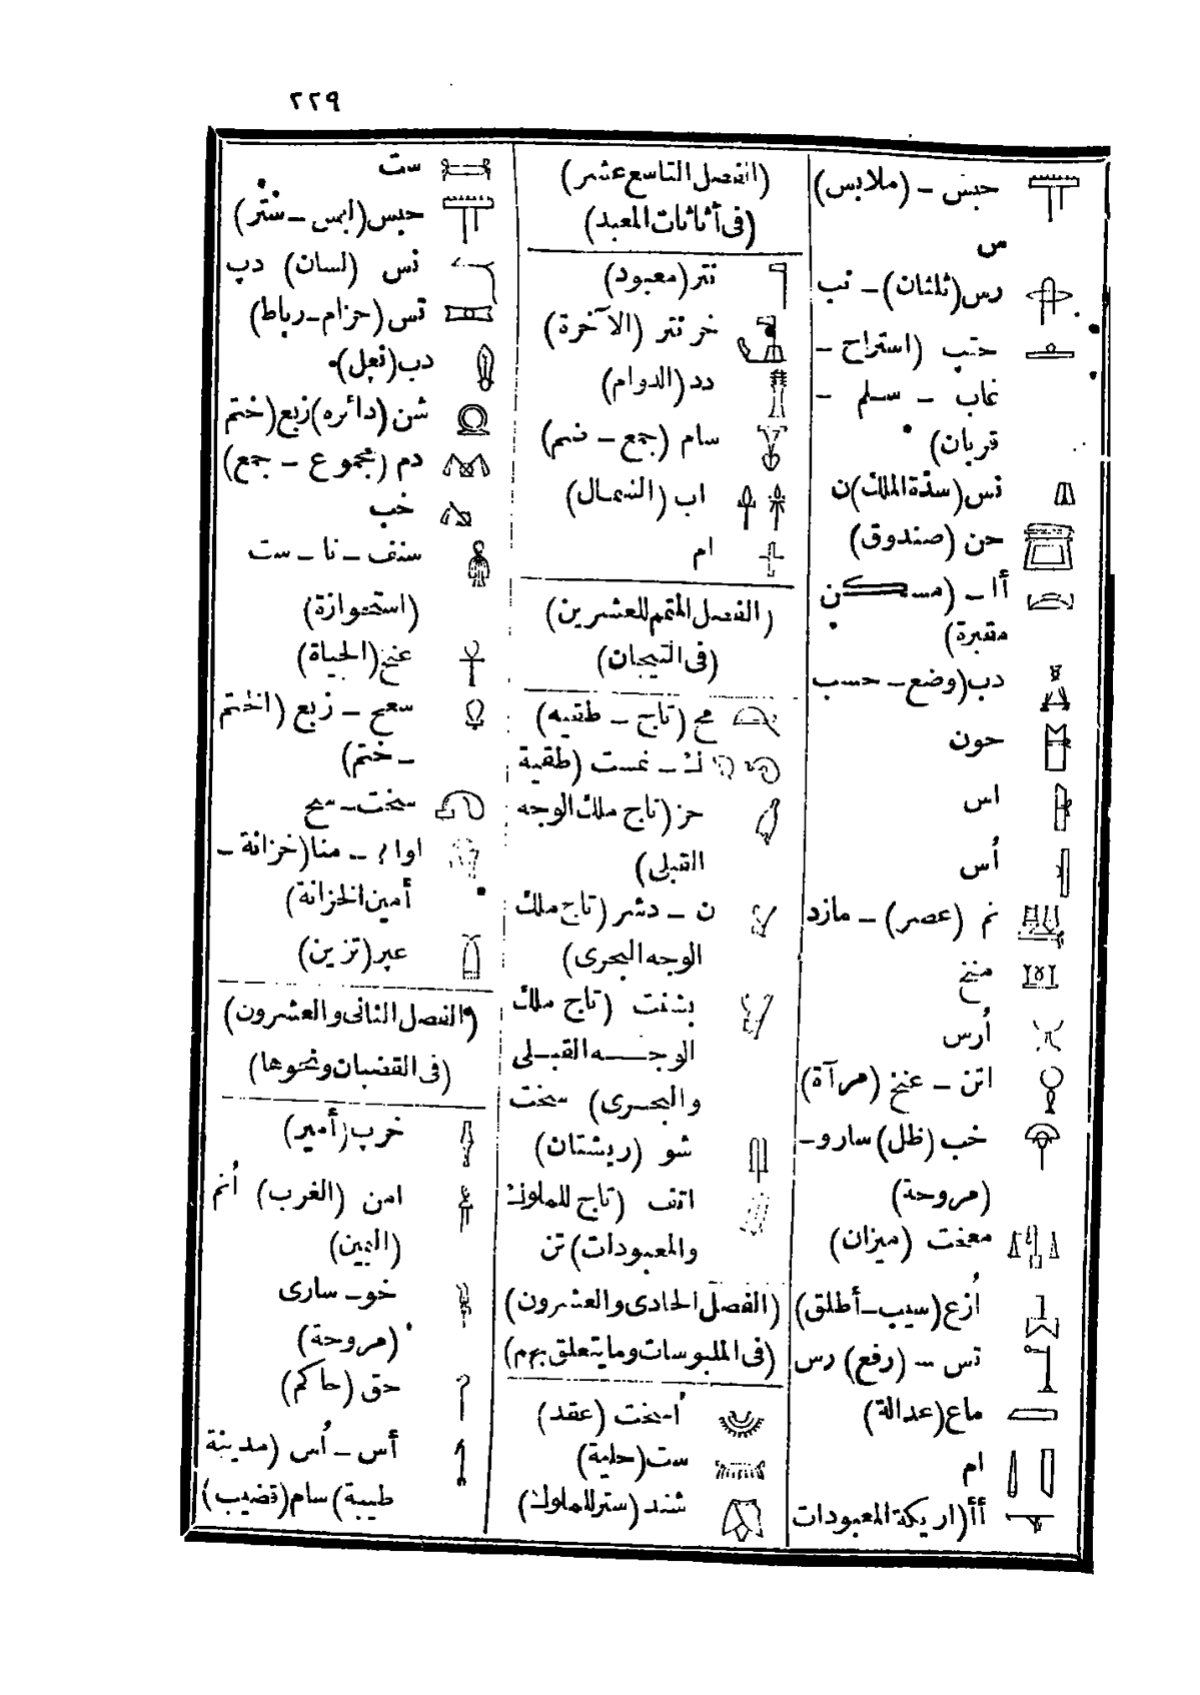 ٢٢٩
حبس - (ملابس)
س
رس (ثلثان) - نب
حتب (استراح -
غاب - سلم -
قربان)
نس (سدّة الملك) ن
حن (صندوق)
أا - (مسكن
مقبرة)
دب (وضع - حسب
حون
اس
أُس
نم (عصر) - مازد
منخ
أُرس
اتن - عنخ (مرآة)
خب (ظل) سارو -
(مروحة)
معخت (ميزان)
أُزع (سيب - أطلق)
تس - (رفع) رس
ماع (عدالة)
ام
أأ (اريكة المعبودات
(الفصل التاسع عشر)
(فى أثاثات المعبد)
نتر (معبود)
خر نتر (الآخرة)
دد (الدوام)
سام (جمع - ضم)
اب (الشمال)
ام
(الفصل المتمم للعشرين)
(فى التيجان)
مح (تاج - طقيه)
ك - نمست (طقية
حز (تاج ملك الوجه
القبلى)
ن - دشر (تاج ملك
الوجه البحرى)
بشنت (تاج ملك
الوجه القبلى
والبحرى) سخت
شو (ريشتان)
اتف (تاج للملوك
والمعبودات) تن
(الفصل الحادى والعشرون)
(فى الملبوسات وما يتعلق بهم)
أُ-بخت (عقد)
ست (حلية)
شند (ستر للملوك)
ست
حبس (لبس - ستر)
نس (لسان) دپ
تس (حزام - رباط)
دب (نعل)
شن (دائره) زبع (ختم
دم (مجموع - جمع)
خب
سنف - نا - ست
(استحوازة)
عنخ (الحياة)
سعح - زبع (الختم
- ختم)
سخت - سح
اوا؟ - منا (خزانة -
أمين الخزانة)
عپر (تزين)
(الفصل الثانى والعشرون)
(فى القضبان ونحوها)
خرب (أمير)
امن (الغرب) أُنم
(اليمين)
خو - سارى
(مروحة)
حق (حاكم)
أس - أُس (مدينة
طيبة) سام (قضيب)